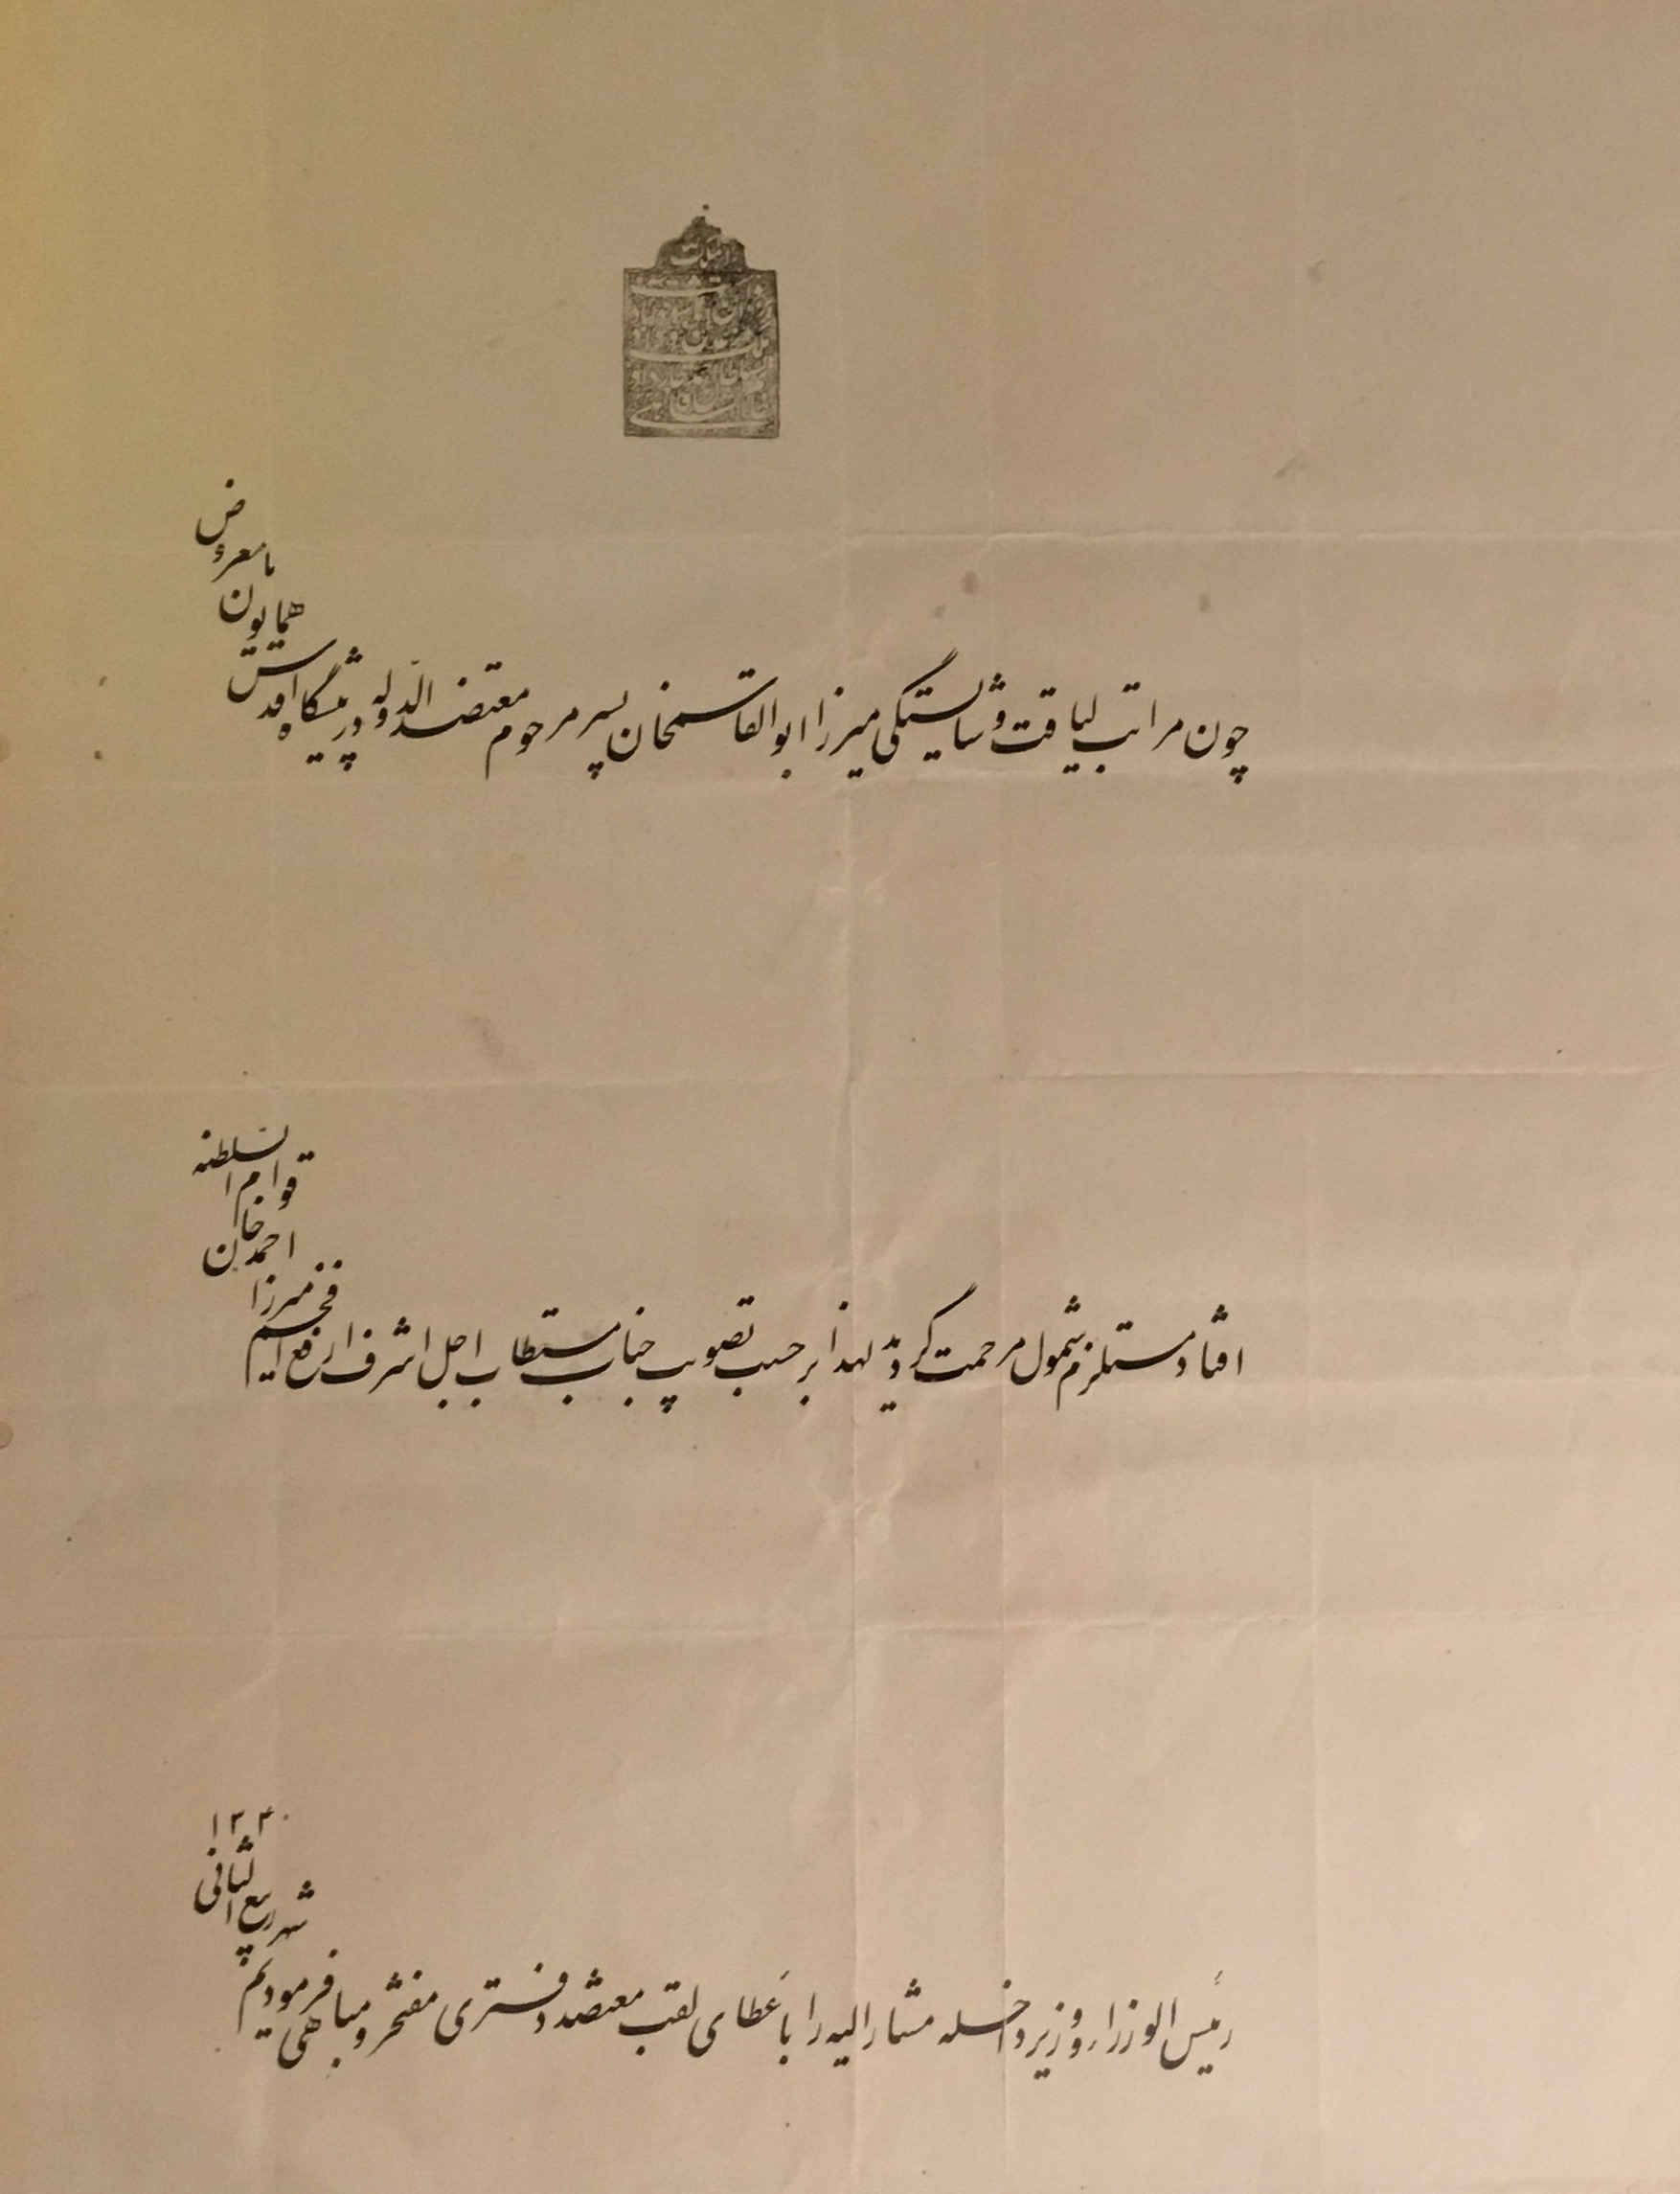 چون مراتب لیاقت و شایستگی میرزا ابوالقاسمخان پسر مرحوم معتضدالدوله در پیشگاه اقدس همایون ما معروض
افتاد مستلزم شمول مرحمت گردید لهذا بر حسب تصویب جناب مستطاب اجل اشرف ارفع افخم میرزا احمد خان قوام السلطنه
رئیس الوزراء و وزیر داخله مشارالیه را باعطای لقب معتضد دفتری مفتخر و مباهی فرمودیم شهر ربیع الثانی ۱۳۴۰